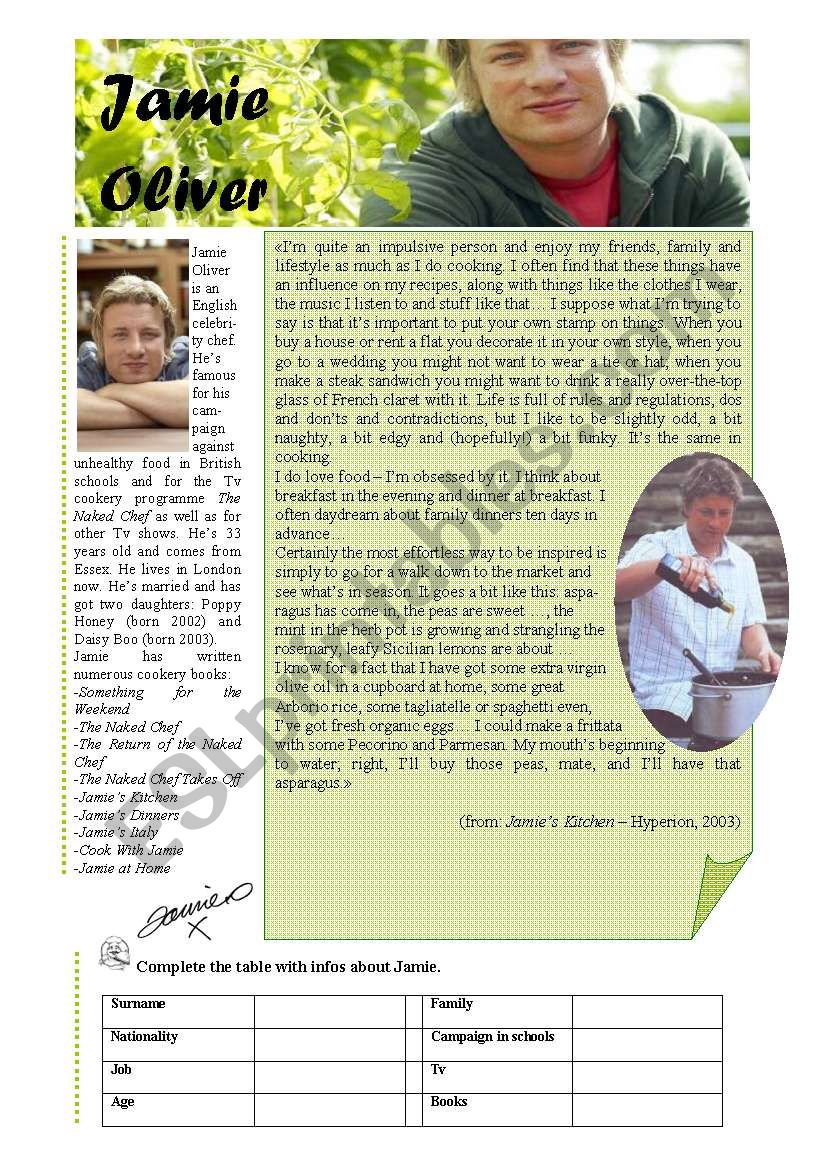 Jamie
Oliver
Jamie
Oliver
is an
English
celebri-
ty chef.
He's
famous
for his
cam-
paign
against
unhealthy food in British
schools and for the Tv
cookery programme The
Naked Chef as well as for
other Tv shows. He's 33
years old and comes from
Essex. He lives in London
now. He's married and has
got two daughters: Poppy
Honey (born 2002) and
Daisy Boo (born 2003).
Jamie has written
numerous cookery books:
-Something for the
Weekend
-The Naked Chef
-The Return of the Naked
Chef
-The Naked Chef Takes Off
-Jamie's Kitchen
-Jamie's Dinners
-Jamie's Italy
-Cook With Jamie
-Jamie at Home
Jamie O
X
«I'm quite an impulsive person and enjoy my friends, family and
lifestyle as much as I do cooking. I often find that these things have
an influence on my recipes, along with things like the clothes I wear,
the music I listen to and stuff like that… I suppose what I'm trying to
say is that it's important to put your own stamp on things. When you
buy a house or rent a flat you decorate it in your own style, when you
go to a wedding you might not want to wear a tie or hat; when you
make a steak sandwich you might want to drink a really over-the-top
glass of French claret with it. Life is full of rules and regulations, dos
and don'ts and contradictions, but I like to be slightly odd, a bit
naughty, a bit edgy and (hopefully!) a bit funky. It's the same in
cooking.
I do love food – I'm obsessed by it. I think about
breakfast in the evening and dinner at breakfast. I
often daydream about family dinners ten days in
advance…
Certainly the most effortless way to be inspired is
simply to go for a walk down to the market and
see what's in season. It goes a bit like this: aspa-
ragus has come in, the peas are sweet …, the
mint in the herb pot is growing and strangling the
rosemary, leafy Sicilian lemons are about ….
I know for a fact that I have got some extra virgin
olive oil in a cupboard at home, some great
Arborio rice, some tagliatelle or spaghetti even,
I've got fresh organic eggs… I could make a frittata
with some Pecorino and Parmesan. My mouth's beginning
to water; right, I'll buy those peas, mate, and I'll have that
asparagus.»
(from: Jamie's Kitchen – Hyperion, 2003)
ESLprintables.com
Complete the table with infos about Jamie.
Surname Family
Nationality Campaign in schools
Job Tv
Age Books